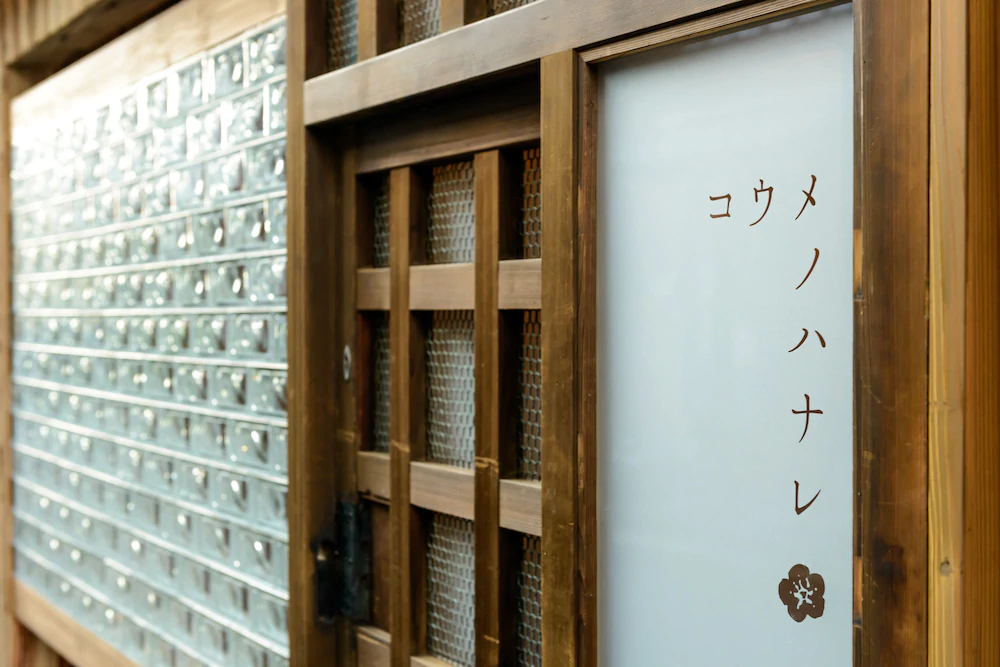 コウメノハナレ